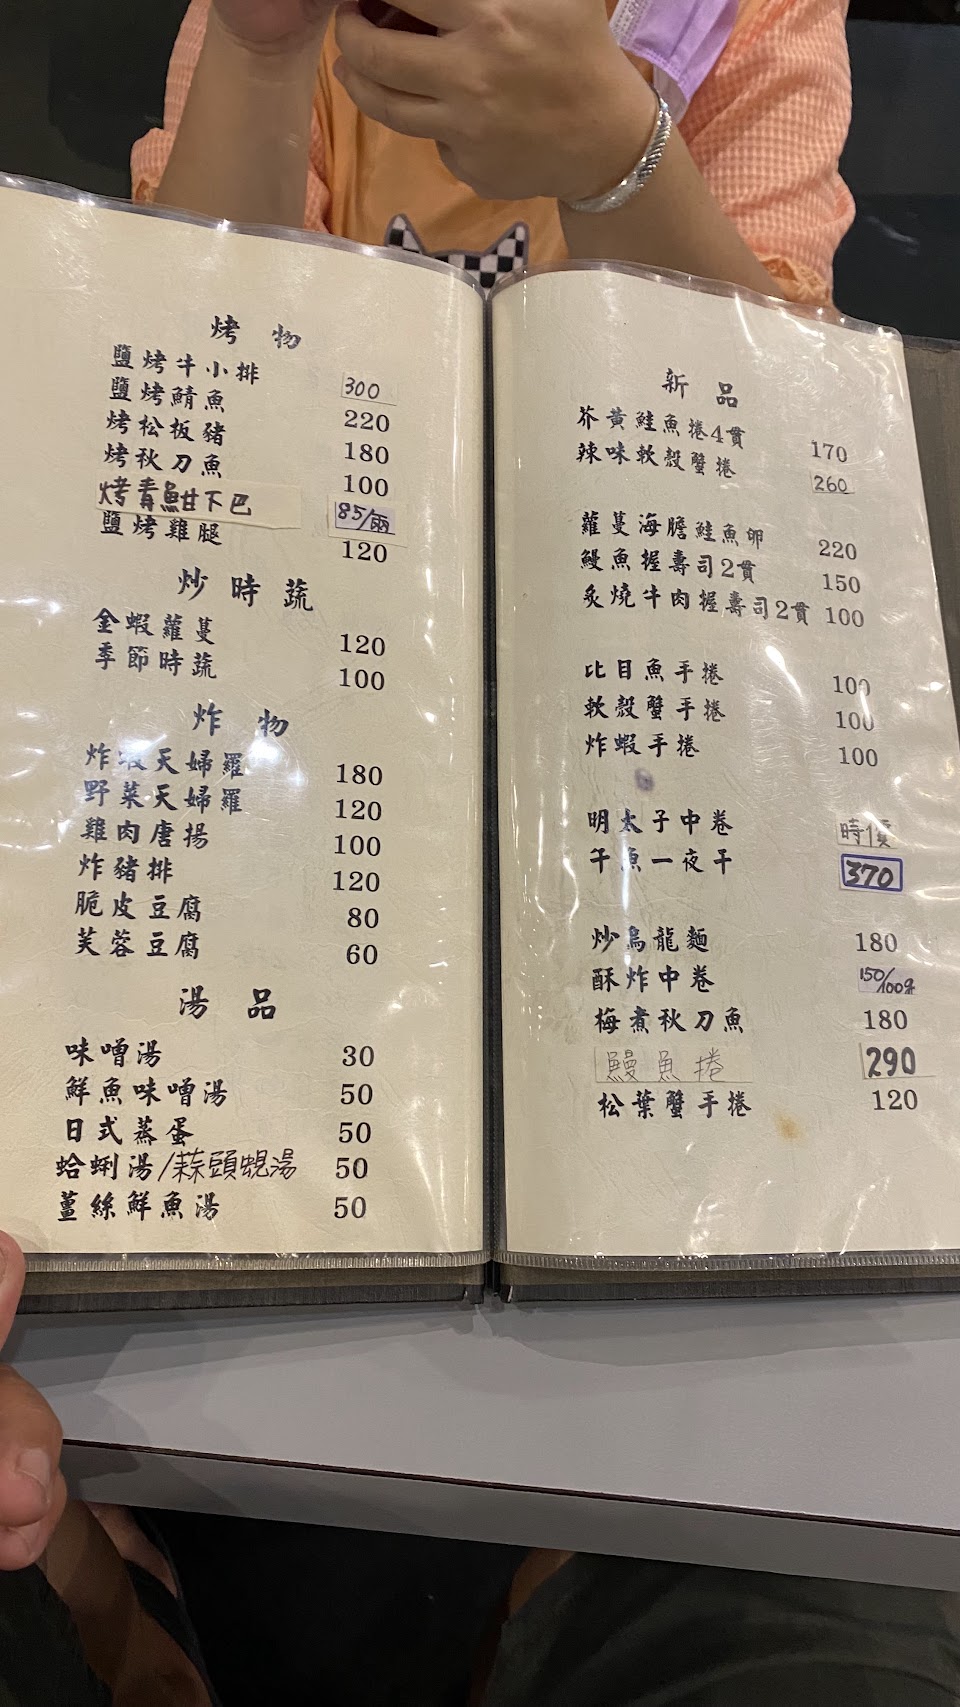 烤物
鹽烤牛小排 300
鹽烤鯖魚 220
烤松板豬 180
烤秋刀魚 100
烤青魽下巴 85/兩
鹽烤雞腿 120
炒時蔬
金蝦蘿蔓 120
季節時蔬 100
炸物
炸蝦天婦羅 180
野菜天婦羅 120
雞肉唐揚 100
炸豬排 120
脆皮豆腐 80
芙蓉豆腐 60
湯品
味噌湯 30
鮮魚味噌湯 50
日式蒸蛋 50
蛤蜊湯/蒜頭蜆湯 50
薑絲鮮魚湯 50
新品
芥黃鮭魚捲4貫 170
辣味軟殼蟹捲 260
蘿蔓海膽鮭魚卵 220
鰻魚握壽司2貫 150
炙燒牛肉握壽司2貫 100
比目魚手捲 100
軟殼蟹手捲 100
炸蝦手捲 100
明太子中卷 時價
午魚一夜干 370
炒烏龍麵 180
酥炸中卷 150/100g
梅煮秋刀魚 180
鰻魚捲 290
松葉蟹手捲 120